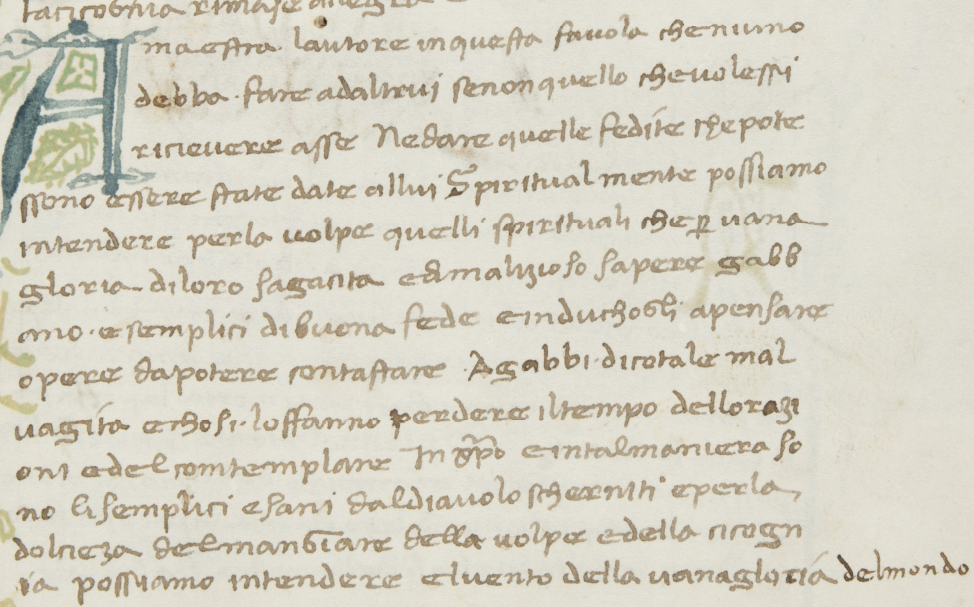 la cicognia rimase allegra
Amaestra lautore inquesta favola cheniuno
debba · fare adaltrui senonquello chevolessi
ricievere asse Nedare quelle fedite chepote
ssono essere state date allui Spiritualmente possiamo
intendere perla volpe quelli spirituali che ꝑ uana
gloria diloro sagacita edmalizioso sapere gabb
ano · esemplici dibuona fede einduchogli apensare
opere dapotere contastare · Agabbi · dicotale mal
vagita echosi · loffanno perdere iltempo dellorazi
oni edelcomtemplare In xp̄o eintalmaniera so
no lisemplici esani daldiavolo scherniti eperla
dolcieza delmangiare della volpe edella cicogn
ia possiamo intendere eluento della vanagloria delmondo